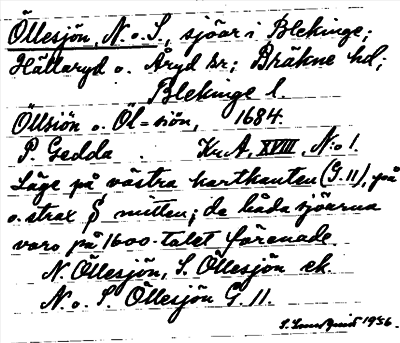 Öllesjön, N. o. S., sjöar i Blekinge;
Hällaryd o. Åryd sr; Bräkne hd;
Blekinge l.
Öllsiön o. Öl=siön, 1684.
P. Gedda Kr. A, XVIII, N:o 1.
Läge på västra kartkanten (G. 11), på
o. strax § mitten; de båda sjöarna
voro på 1600-talet förenade.
N. Öllesjön, S. Öllesjön ek.
N. o. S. Öllesjön G. 11.
1956.